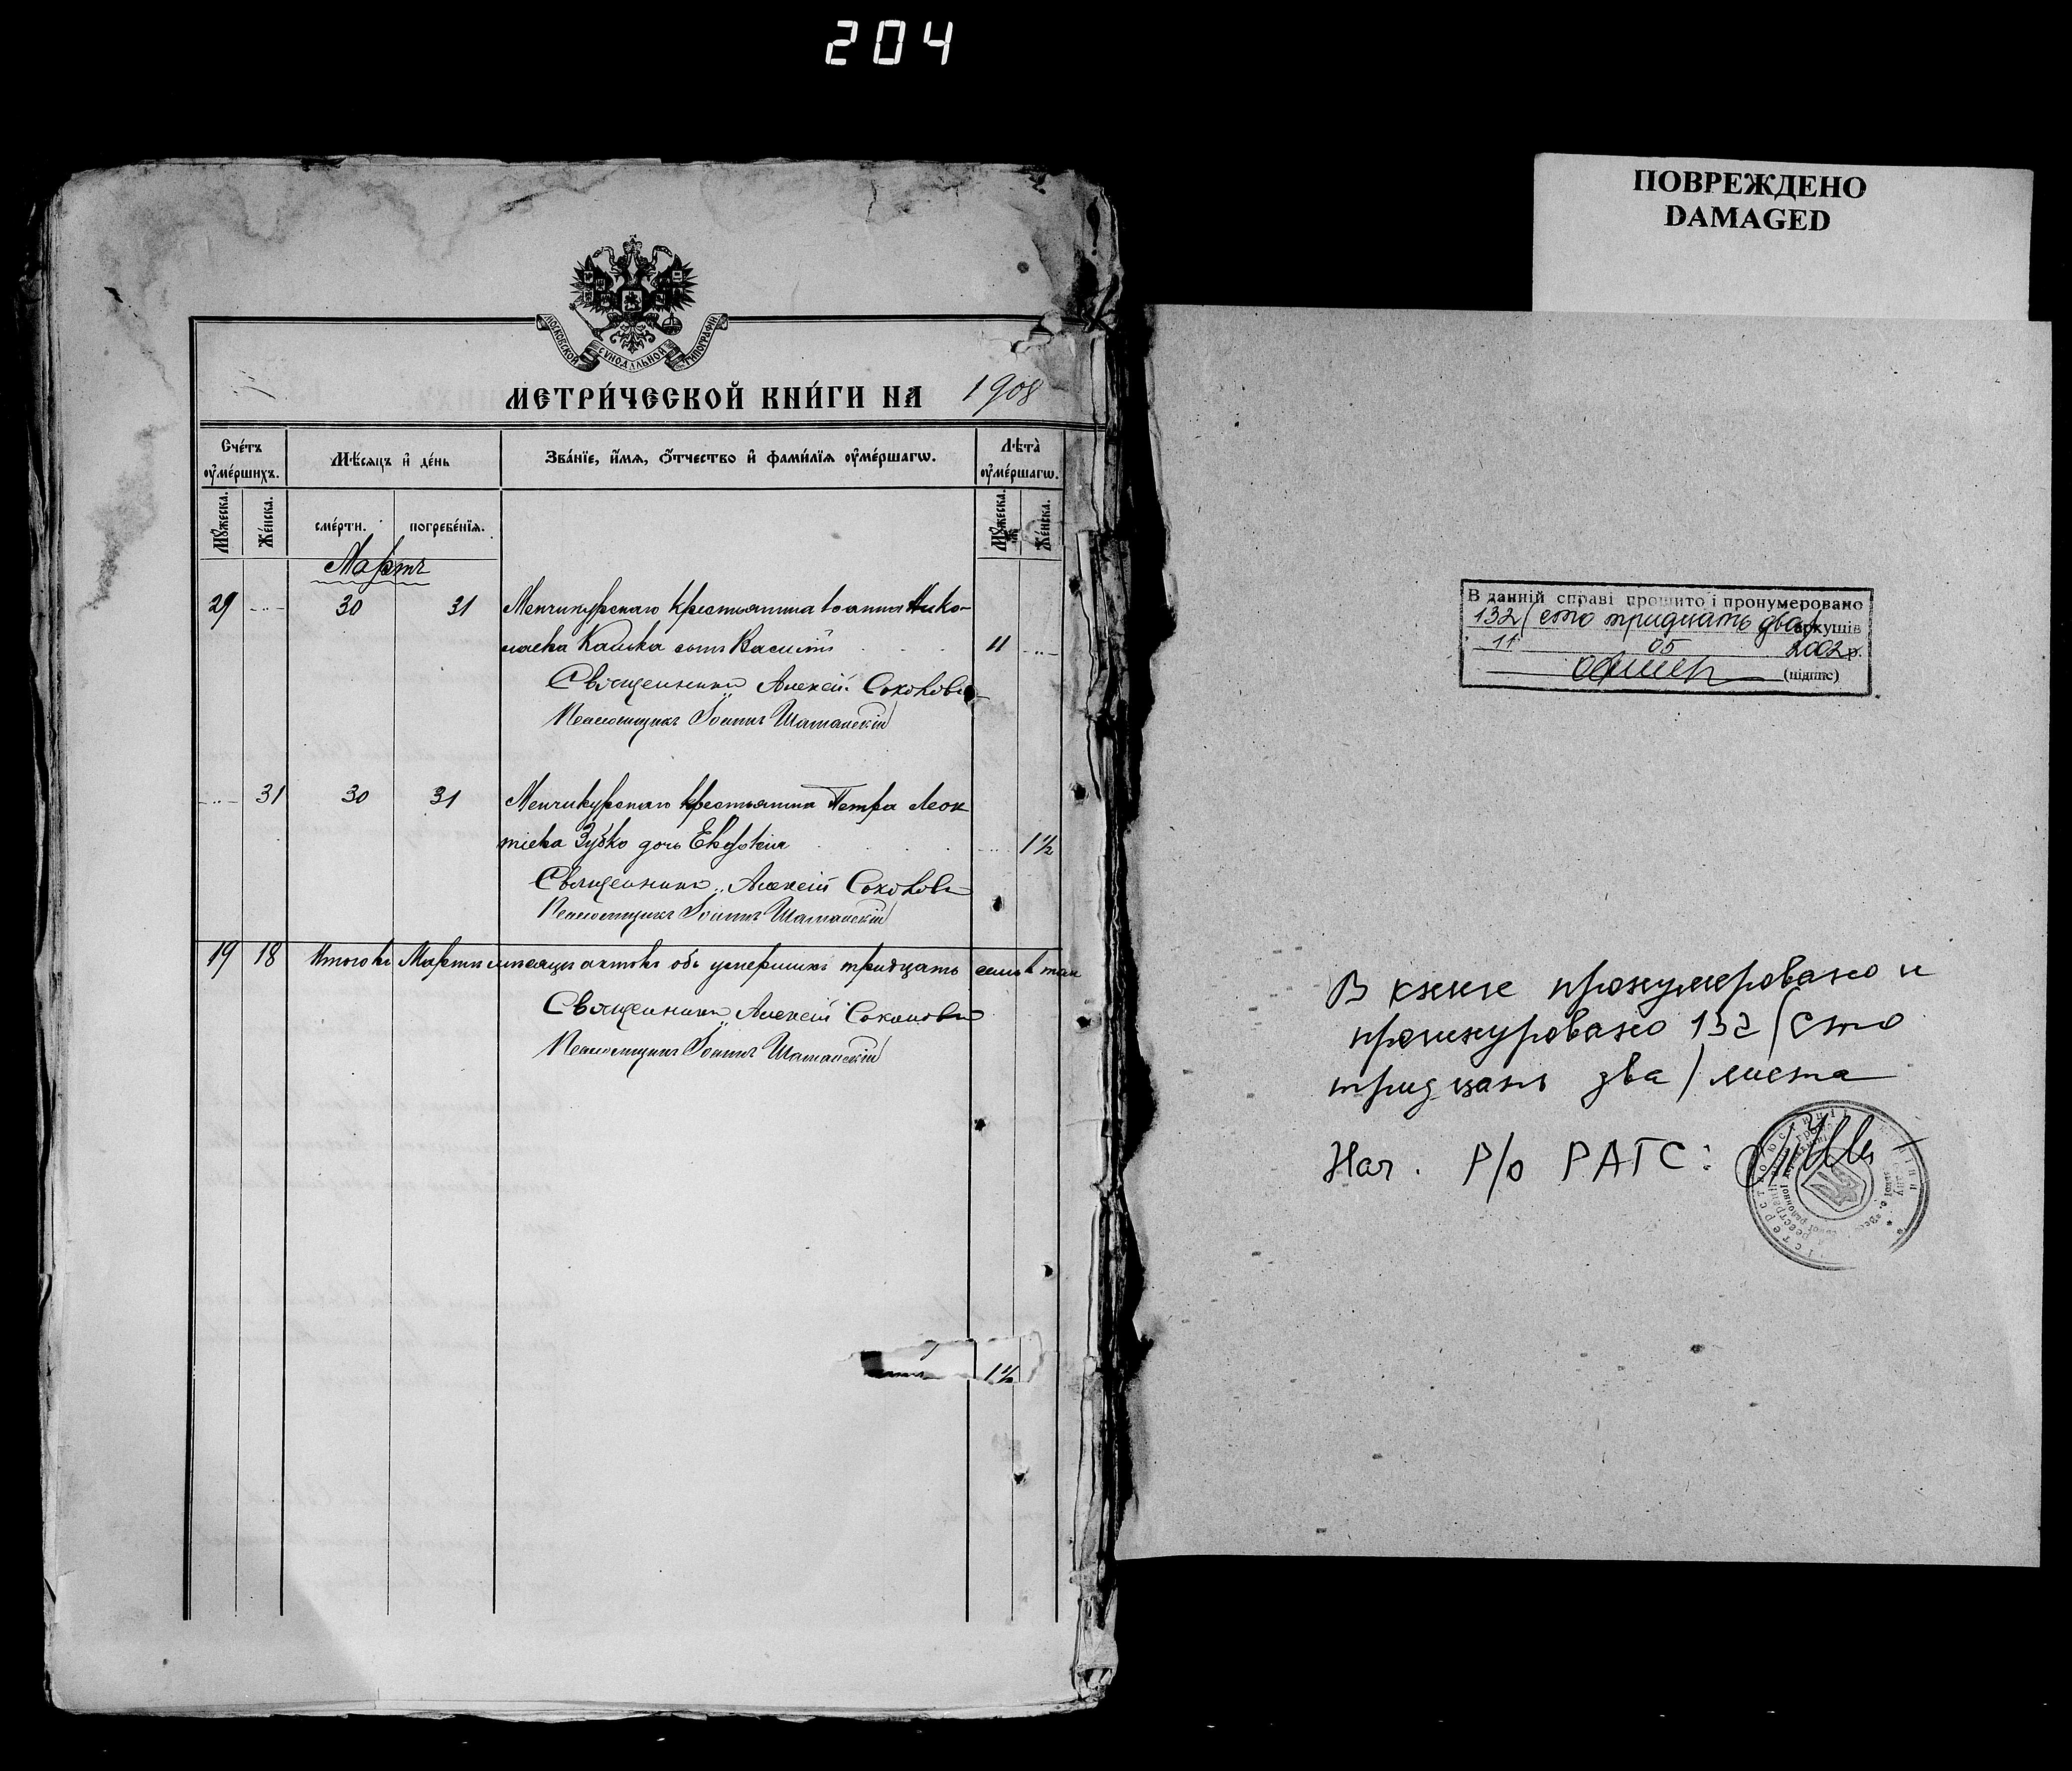 204
ПОВРЕЖДЕНО
DAMAGED
МОСКОВСКОЙ СѴНОДАЛЬНОЙ ТИПОГРАФІИ
МЕТРИ́ЧЕСКОЙ КНИ́ГИ НА 1908
Сче́тъ оу҆ме́ршихъ.
Мѣ́сяцъ и҆ де́нь
Зва́нїе, и҆́мя, ѻ҆́тчество и҆ фами́лїя оу҆ме́ршагѡ.
Лѣ́та оу҆ме́ршагѡ.
Мꙋ́жеска.
Же́нска.
сме́рти.
погребе́нїя.
Мꙋ́жеска.
Же́нска.
Мартъ
29 30 31 Менчикурскаго крестьянина Іоанна Нико-
лаева сынъ Василій 11
Священникъ Алексій Соколовъ
Псаломщикъ Іоаннъ Шатанскій
31 30 31 Менчикурскаго крестьянина Петра Леон
тіева Зубко дочь Евдокія 1½
Священникъ Алексій Соколовъ
Псаломщикъ Іоаннъ Шатанскій
19 18 Итого въ Мартѣ мѣсяцѣ актовъ объ умершихъ тридцать семь
Священникъ Алексій Соколовъ
Псаломщикъ Іоаннъ Шатанскій
1½
В данній справі прошито і пронумеровано
132/сто тридцать два/ аркушів
11 05 2002р.
(підпис)
В книге пронумеровано и
прошнуровано 132/сто
тридцать два/ листа
Нач. Р/о РАГС: